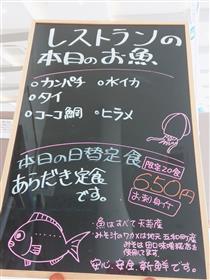 レストランの
本日のお魚
・カンパチ ・水イカ
・タイ
・コーコ鯛 ・ヒラメ
本日の日替定食
あらだき定食
です。
限定20食
650円
お刺身付
・魚はすべて天草産
みそ汁のワカメは地元 五和町産
みそは田口味噌糀店を
使用してます
安心、安全、新鮮です。